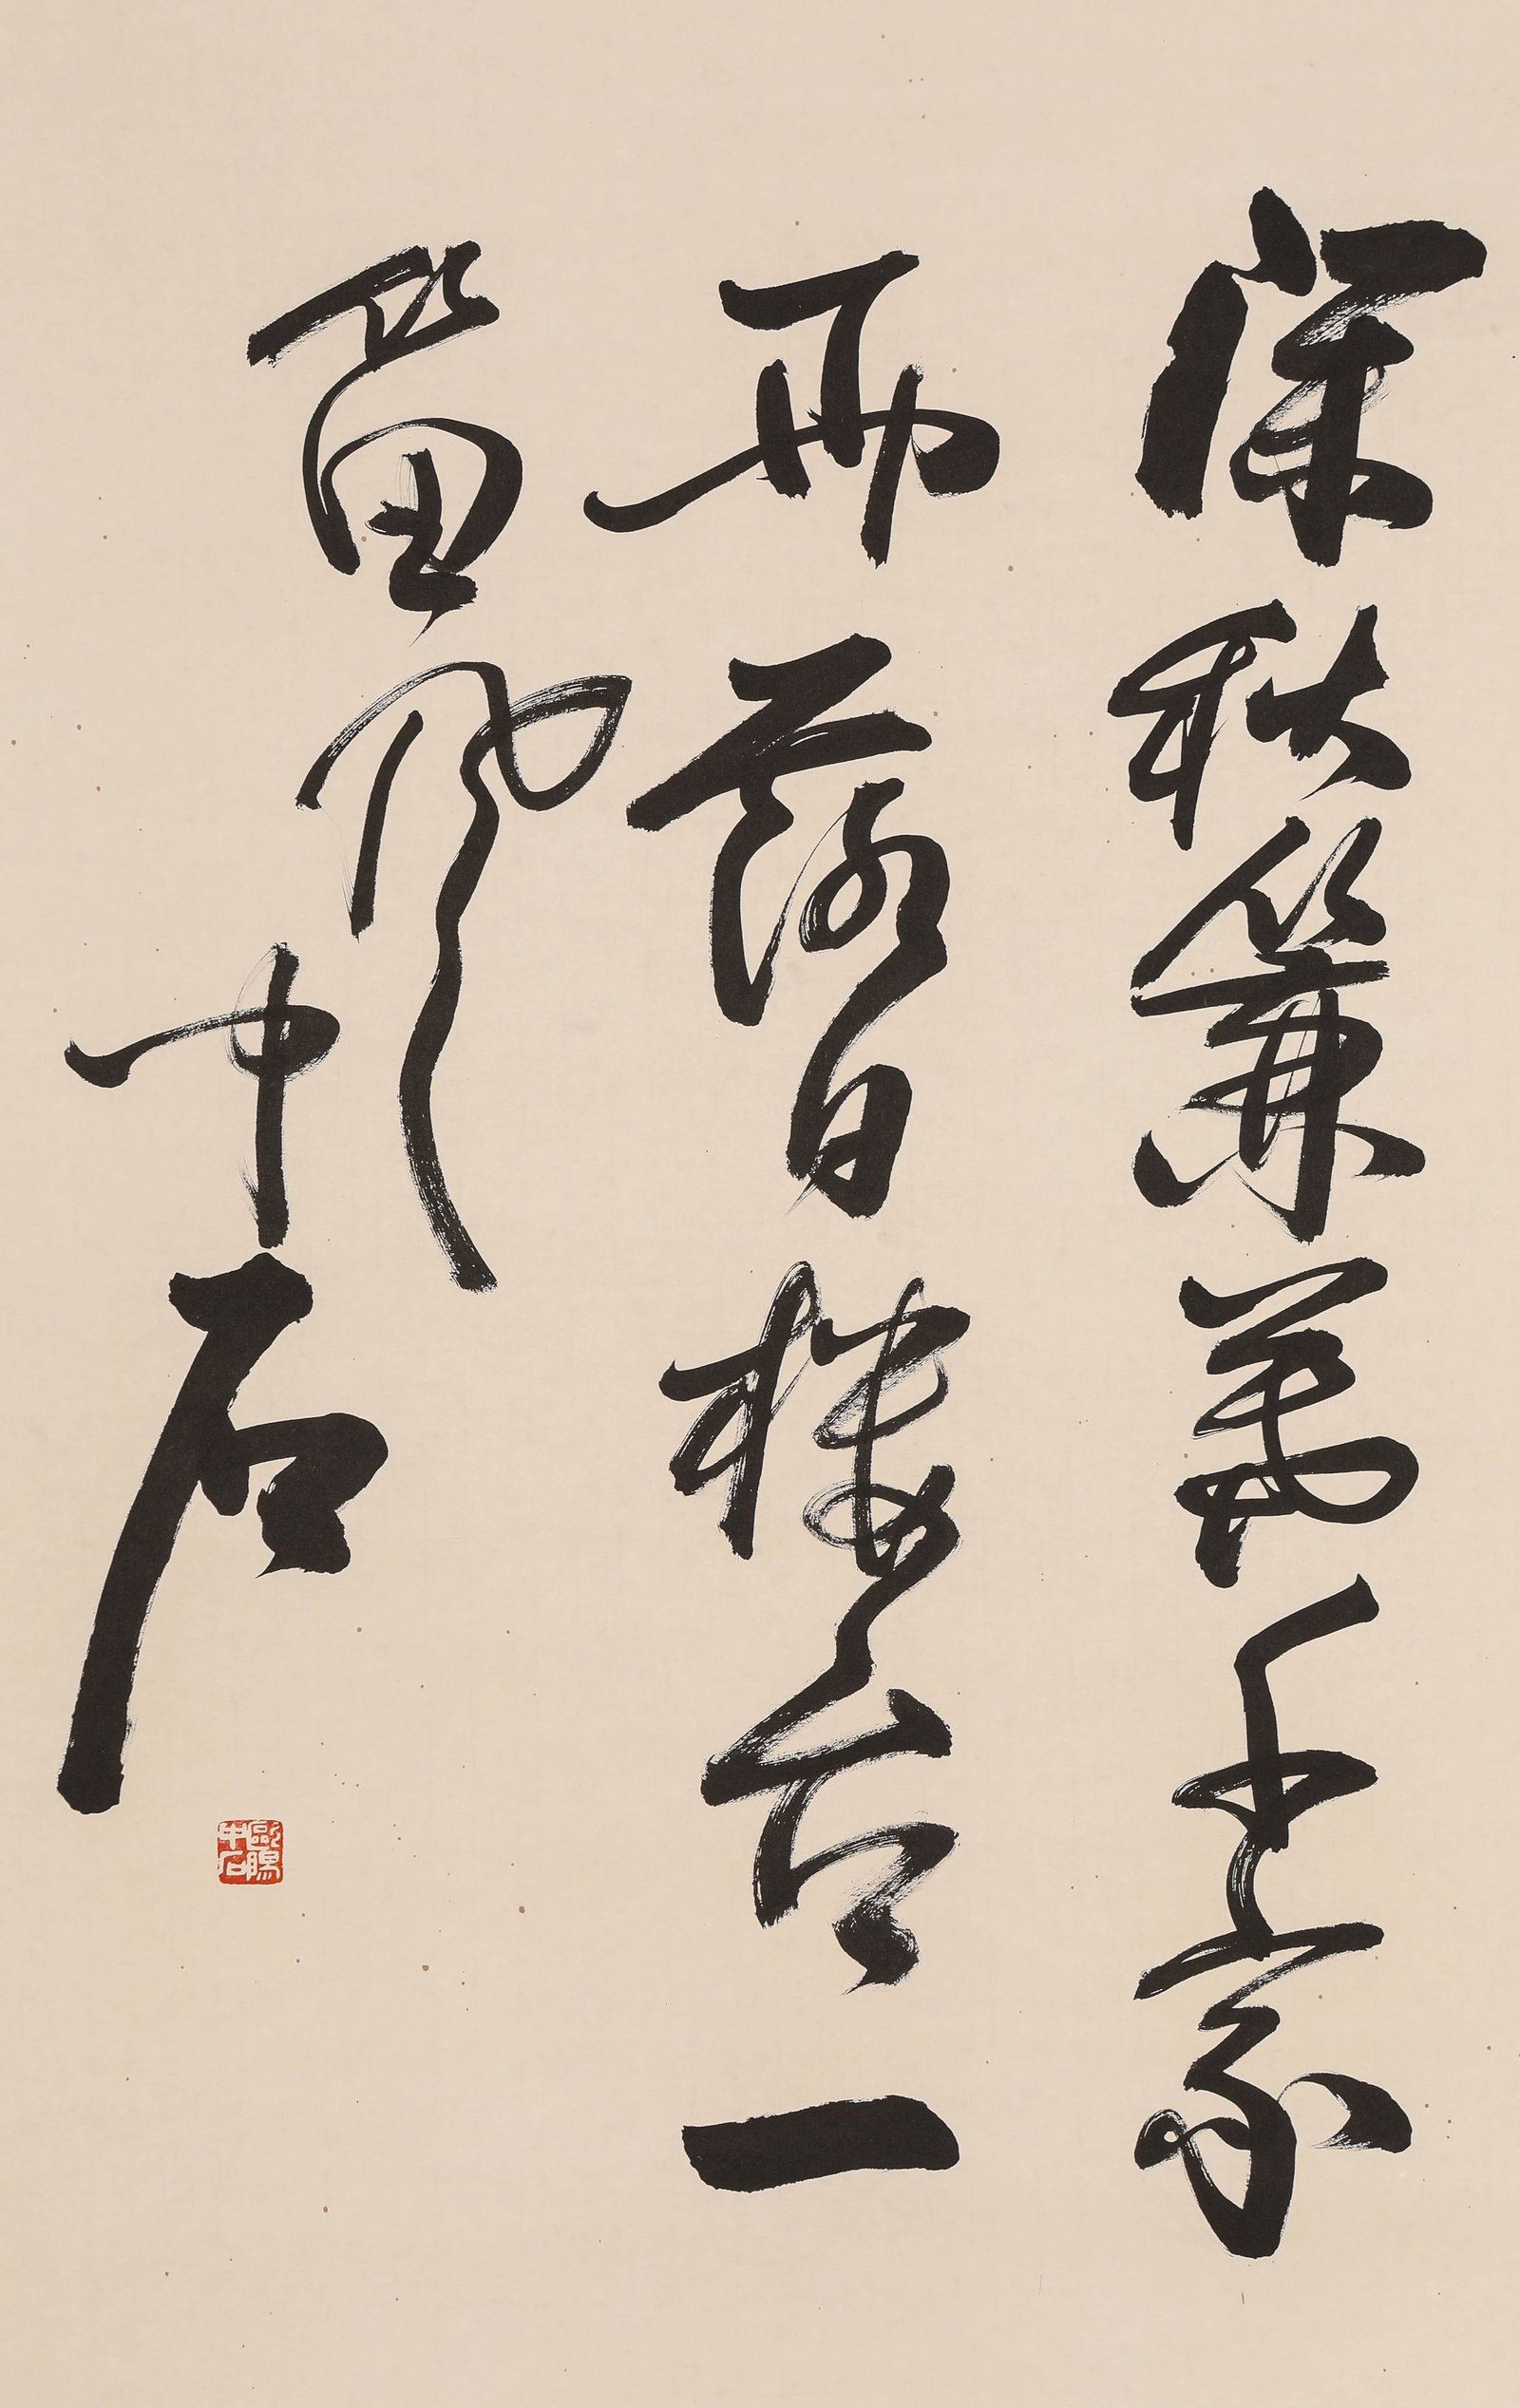 深秋簾幕千家
雨落日樓台一
笛風
中石
歐陽中石